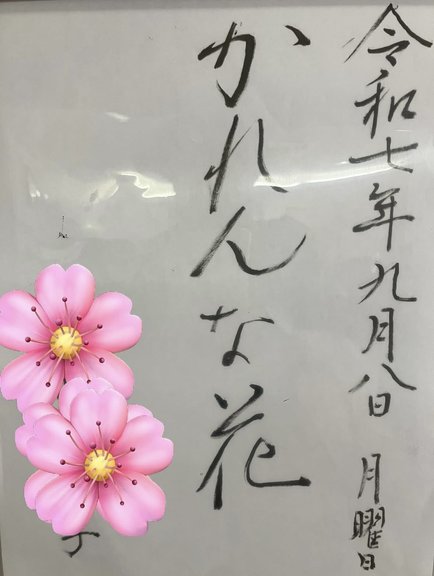 令和七年九月八日 月曜日
かれんな花